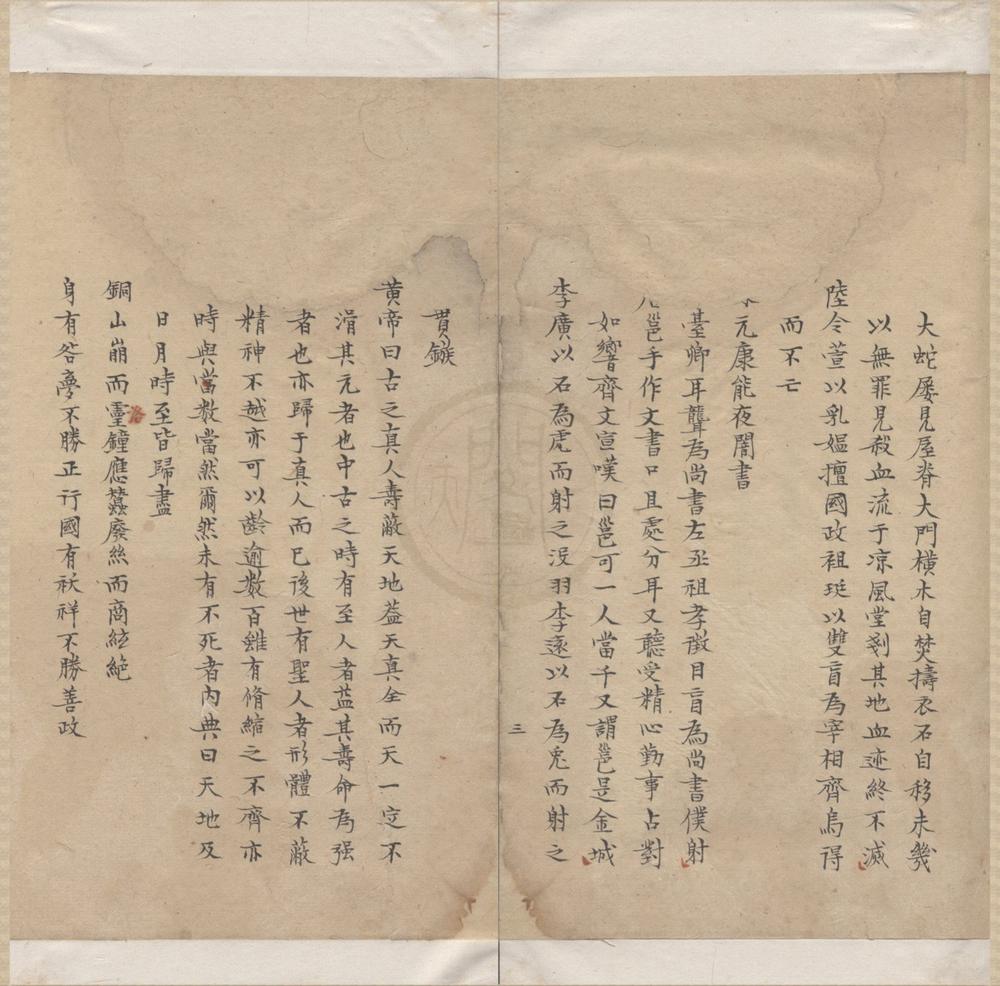 大蛇屡見屋脊大門横木自焚擣衣石自移未幾
以無罪見殺血流于凉風堂剗其地血迹終不滅
陸令萱以乳媼擅國政祖珽以雙盲為宰相齊烏得
而不亡
元康能夜闇書
臺卿耳聾為尚書左丞祖孝徵目盲為尚書僕射
邕手作文書口且處分耳又聽受精心勤事占對
如響齊文宣嘆曰邕可一人當千又謂邕是金城
李廣以石為虎而射之没羽李遠以石為兎而射之
三
貫鏃
黄帝曰古之真人壽蔽天地葢天真全而天一定不
滑其元者也中古之時有至人者葢其壽命為强
者也亦歸于真人而已後世有聖人者形體不蔽
精神不越亦可以齡逾數百雖有脩縮之不齊亦
時與當數當然爾然未有不死者内典曰天地及
日月時至皆歸盡
銅山崩而靈鐘應蠶廢絲而商絃絶
洛
身有咎夣不勝正行國有祅祥不勝善政